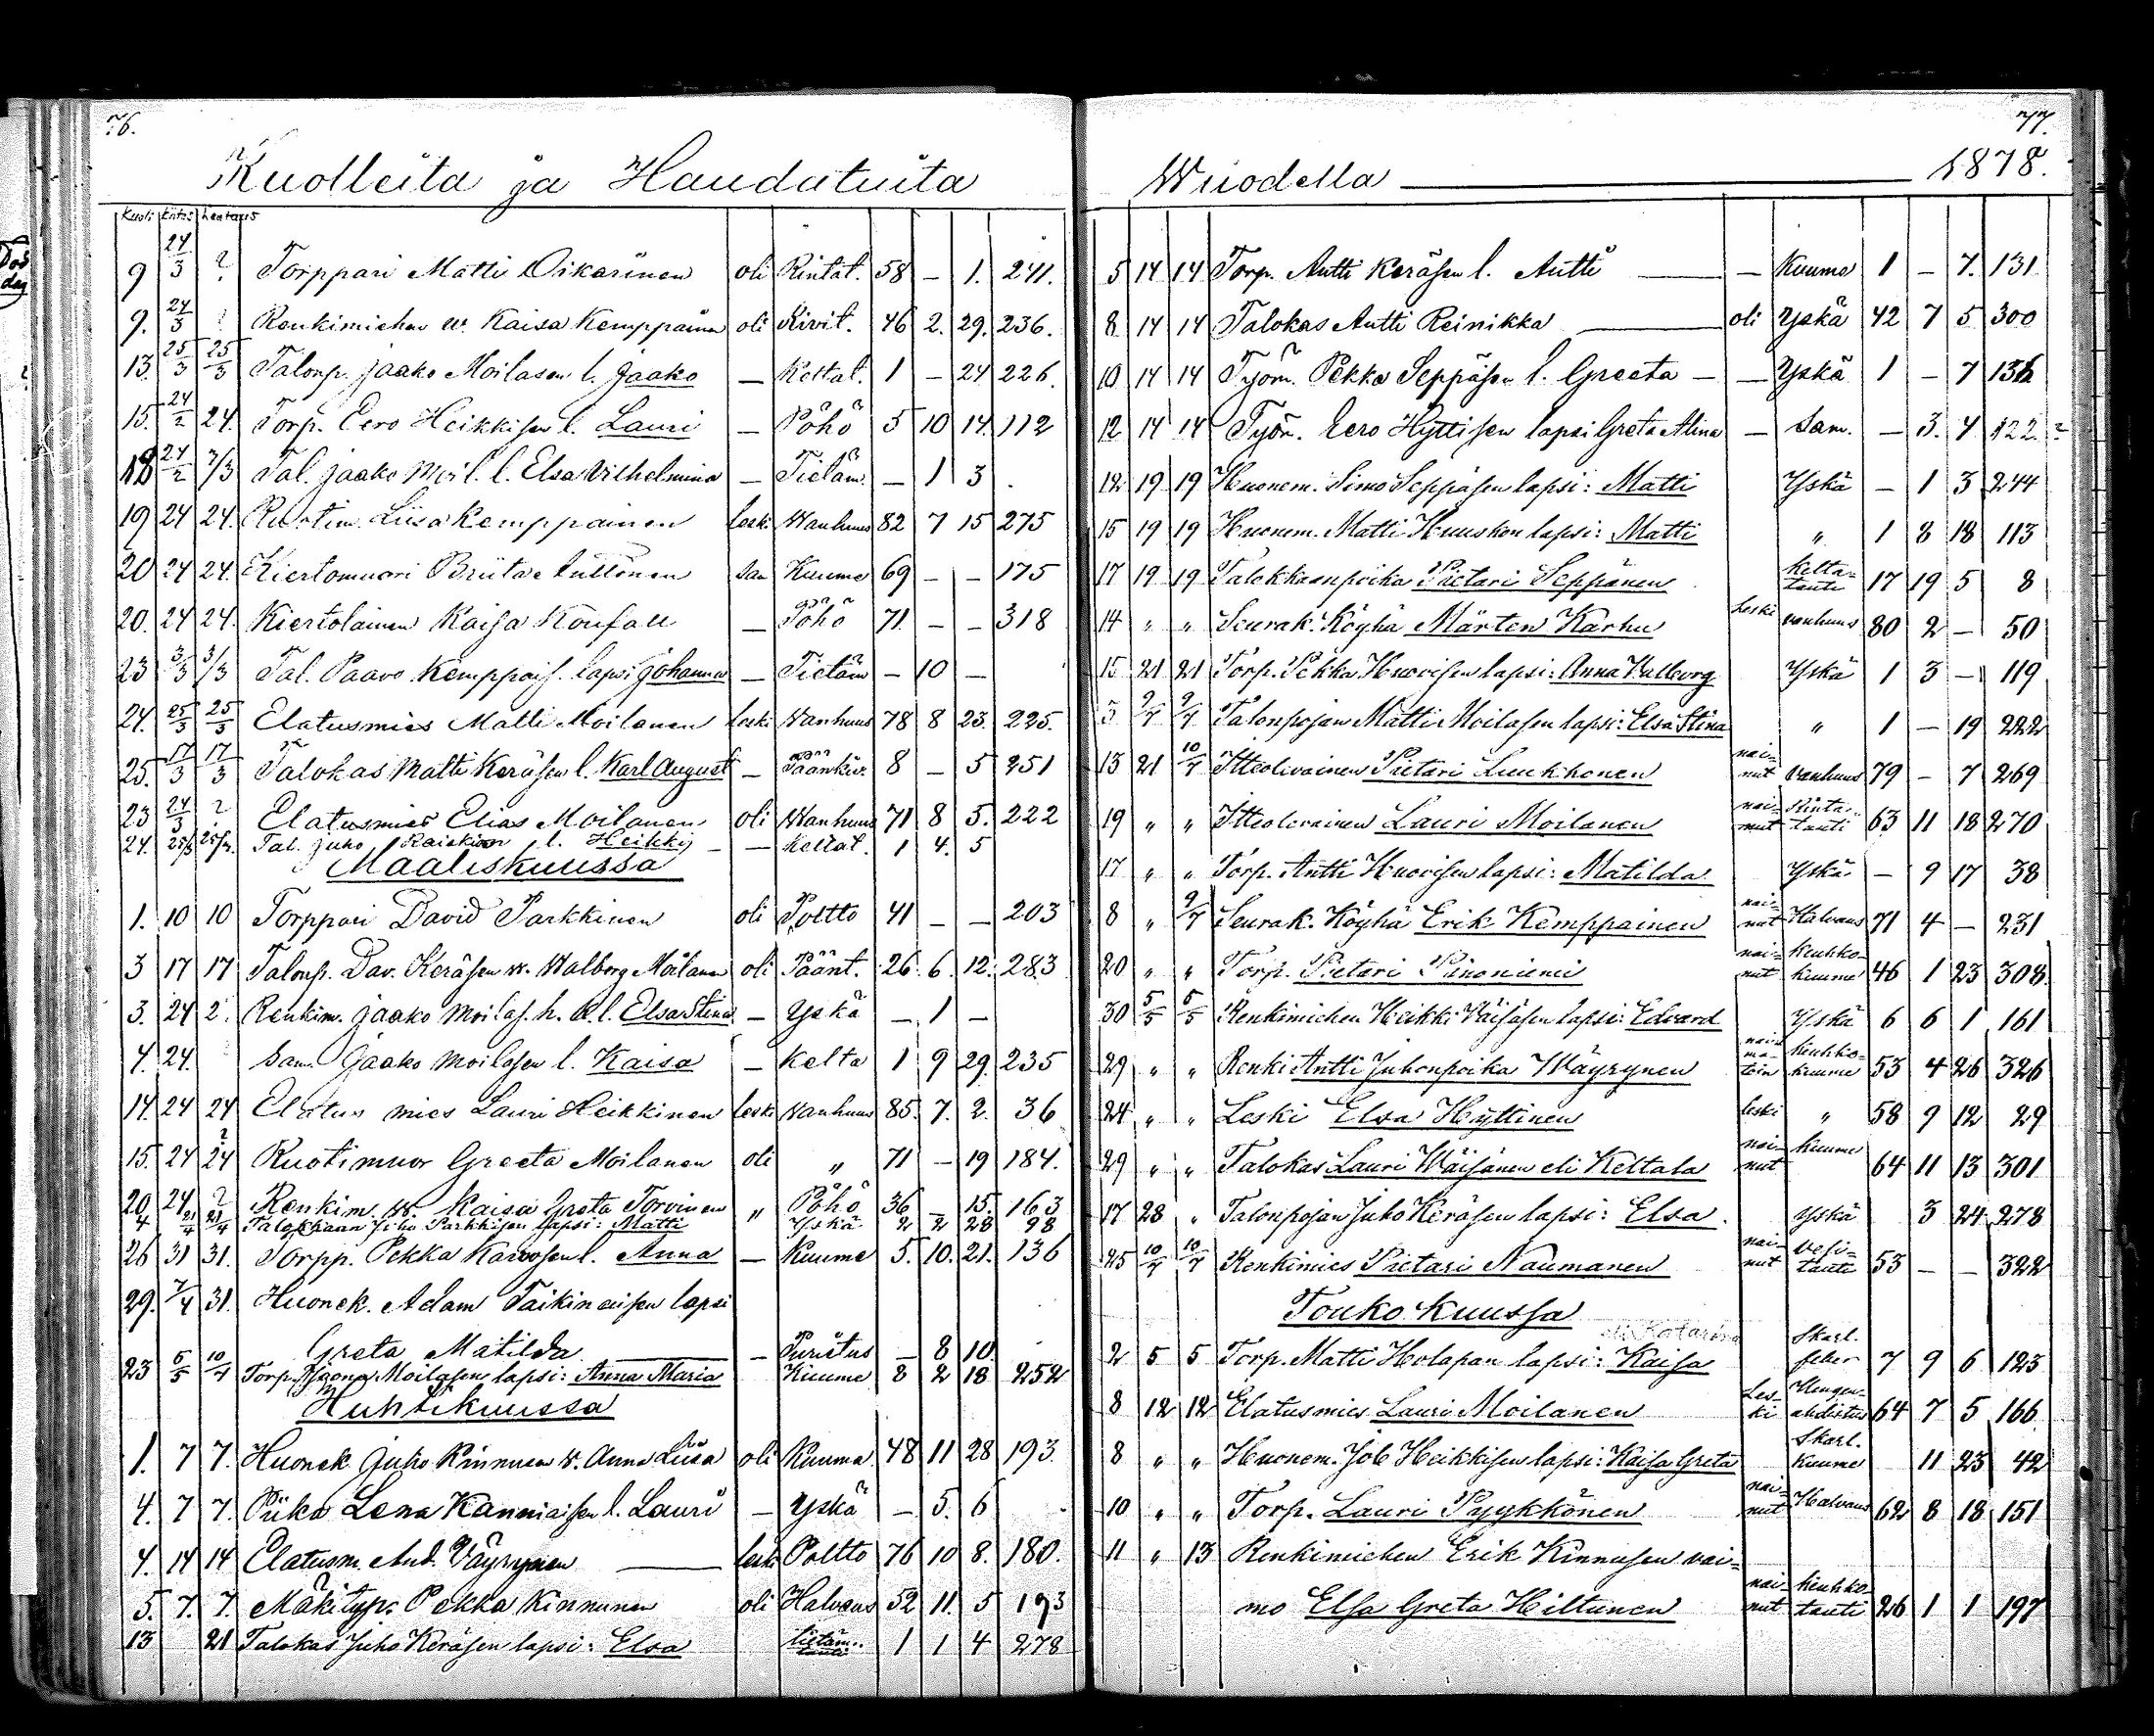 76.
Kuolleita ja Haudatuita
Kuoli
9 24/3 ? Torppari Matti Oikarinen oli Rintat. 58 – 1. 241.
9. 24/3 ? Renkimiehen w. Kaisa Kemppainen oli Rivit. 46 2. 29. 236.
13. 25/3 25/3 Talonp. Jaako Moilasen l. Jaako – Keltat. 1 – 24 226.
15. 24/2 24. Torp. Eero Heikkisen l. Lauri – Pöhö 5 10 14. 112
18 24/2 3/3 Tal. Jaako Moil. l. Elsa Vilhelmina – Tietäm. – 1 3
19 24 24. Ruotim. Liisa Kemppainen leski Wanhuus 82 7 15 275
20 24 24. Kiertomuori Briita Kuume 69 – – 175
20. 24 24. Kiertolainen Kaisa – Pöhö 71. – – 318
23 3/3 3/3 Tal. Paavo Kemppais. lapsi Johanna – Tietäm – 10 –
24. 25/3 25/3 Elatusmies Matti Moilanen leski Wanhuus 78 8 23. 225.
25. 17/3 17/3 Talokas Matti Keräsen l. Karl August – Päänkiv. 8 – 5 251
23 24/3 ? Elatusmies Elias Moilanen oli Wanhuus 71 8 5. 222
24. 25/3 Tal. Juho l. Heikki – Keltat. 1 4. 5
Maaliskuussa
1. 10 10 Torppari David Parkkinen oli Poltto 41 – – 203
3 17 17 Talonp. Dav. Keräsen w. Walborg Moilanen oli Päänt. 26. 6. 12. 283
3. 24 2. Renkim. Jaako Moilas. h. l. Elsa Stina – Yskä – 1 –
4. 24. Jaako Moilasen l. Kaisa – Kelta 1 9 29. 235
14. 24 24 Elatus mies Lauri Heikkinen leski Wanhuus 85. 7. 2. 36
15. 24 24 Ruotimuor Greeta Moilanen oli „ 71 – 19 184.
20 24 ? Renkim. w. Kaisa Greta Torvinen „ Pöhö 36 – 15. 163
4 21/4 21/4 Talokkaan Juho Parkkisen lapsi: Matti Yskä 2 2 28 98
26 31 31. Torpp. Pekka Karvosen l. Anna – Kuume 5. 10. 21. 136
29. 7/4 31. Huonek. Adam Taikinaisen lapsi
Greta Matilda – Puristus – 8 10.
23 5/5 10/7 Torp. Moilasen lapsi: Anna Maria Kuume 8 2 18 252
Huhtikuussa
1. 7 7. Huonek Juho Kinnusen w. Anna Liisa oli Kuuma 48 11 28 193.
4. 7 7. Piika Lena Kanniaisen l. Lauri – Yskä – 5. 6
4. 14 14 Elatusm. And. Väyrynen leski Poltto 76 10 8. 180.
5. 7. 7. Mäkityp. Pekka Kinnunen oli Halvaus 52 11. 5 193
13 21 Talokas Juho Keräsen lapsi: Elsa tietäm. tauti 1 1 4 278
77.
Wuodella 1878.
5 14 14 Torp. Antti Keräsen l. Antti – Kuume 1 – 7. 131
8 14 14 Talokas Antti Reinikka oli Yskä 42 7 5 300
10 14 14 Työm. Pekka Seppäsen l. Greeta – – Yskä 1 – 7 136
12 14 14 Työm. Eero Hyttisen lapsi Greta Alina – Sam. – 3. 4 122. ?
12 19 19 Huonem. Simo Seppäsen lapsi: Matti Yskä – 1 3 244
15 19 19 Huonem. Matti Huuskon lapsi: Matti „ 1 8 18 113
17 19 19 Talokkaanpoika Pietari Seppänen kelta- tauti 17 19 5 8
14 „ „ Seurak. Köyhä Mårten Karhu Leski vanhuus 80 2 – 50
15 21 21 Torp. Pekka Huovisen lapsi: Anna Valborg Yskä 1 3 – 119
5 9/7 9/7 Talonpojan Matti Moilasen lapsi: Elsa Stina „ 1 – 19 222
13 21 10/7 Itteolevainen Pietari Luukkonen nai- nut vanhuus 79 – 7 269
19 „ „ Itteolevainen Lauri Moilanen nai- nut Rinta- tauti 63 11 18 270
17 „ „ Torp. Antti Huovisen lapsi: Matilda Yskä – 9 17 38
8 „ 9/7 Seurak. Köyhä Erik Kemppainen nai- nut Halvaus 71 4 – 231
20 „ „ Torp. Pietari Pinoniemi nai- nut keuhko- kuume 46 1 23 308.
30 5/5 5/5 Renkimiehen Heikki Väisäsen lapsi: Edvard Yskä 6 6 1 161
29 „ „ Renki Antti Juhonpoika Wäyrynen nai- ma- toin keuhko- kuume 53 4 26 326
24 „ „ Leski Elsa Hyttinen leski „ 58 9 12 29
29 „ „ Talokas Lauri Wäisänen eli Keltala nai- nut kuume 64 11 13 301
17 28 „ Talonpojan Juho Keräsen lapsi: Elsa. Yskä 3 24 278
25 10/7 10/7 Renkimies Pietari Naumanen nai- nut vesi- tauti 53 – – 322
Toukokuussa
2 5 5 Torp. Matti Holapan lapsi: Kaisa eli Katarina Skarl. feber 7 9 6 123
8 12 12 Elatusmies Lauri Moilanen Les- ki Hengen- ahdistus 64 7 5 166
8 „ „ Huonem. Job Heikkisen lapsi: Kaisa Greta Skarl. kuume 11 23 42
10 „ „ Torp. Lauri Pyykkönen nai- nut Halvaus 62 8 18 151
11 „ 13 Renkimiehen Erik Kinnusen vai-
mo Elsa Greta Hiltunen nai- nut keuhko- tauti 26 1 1 197